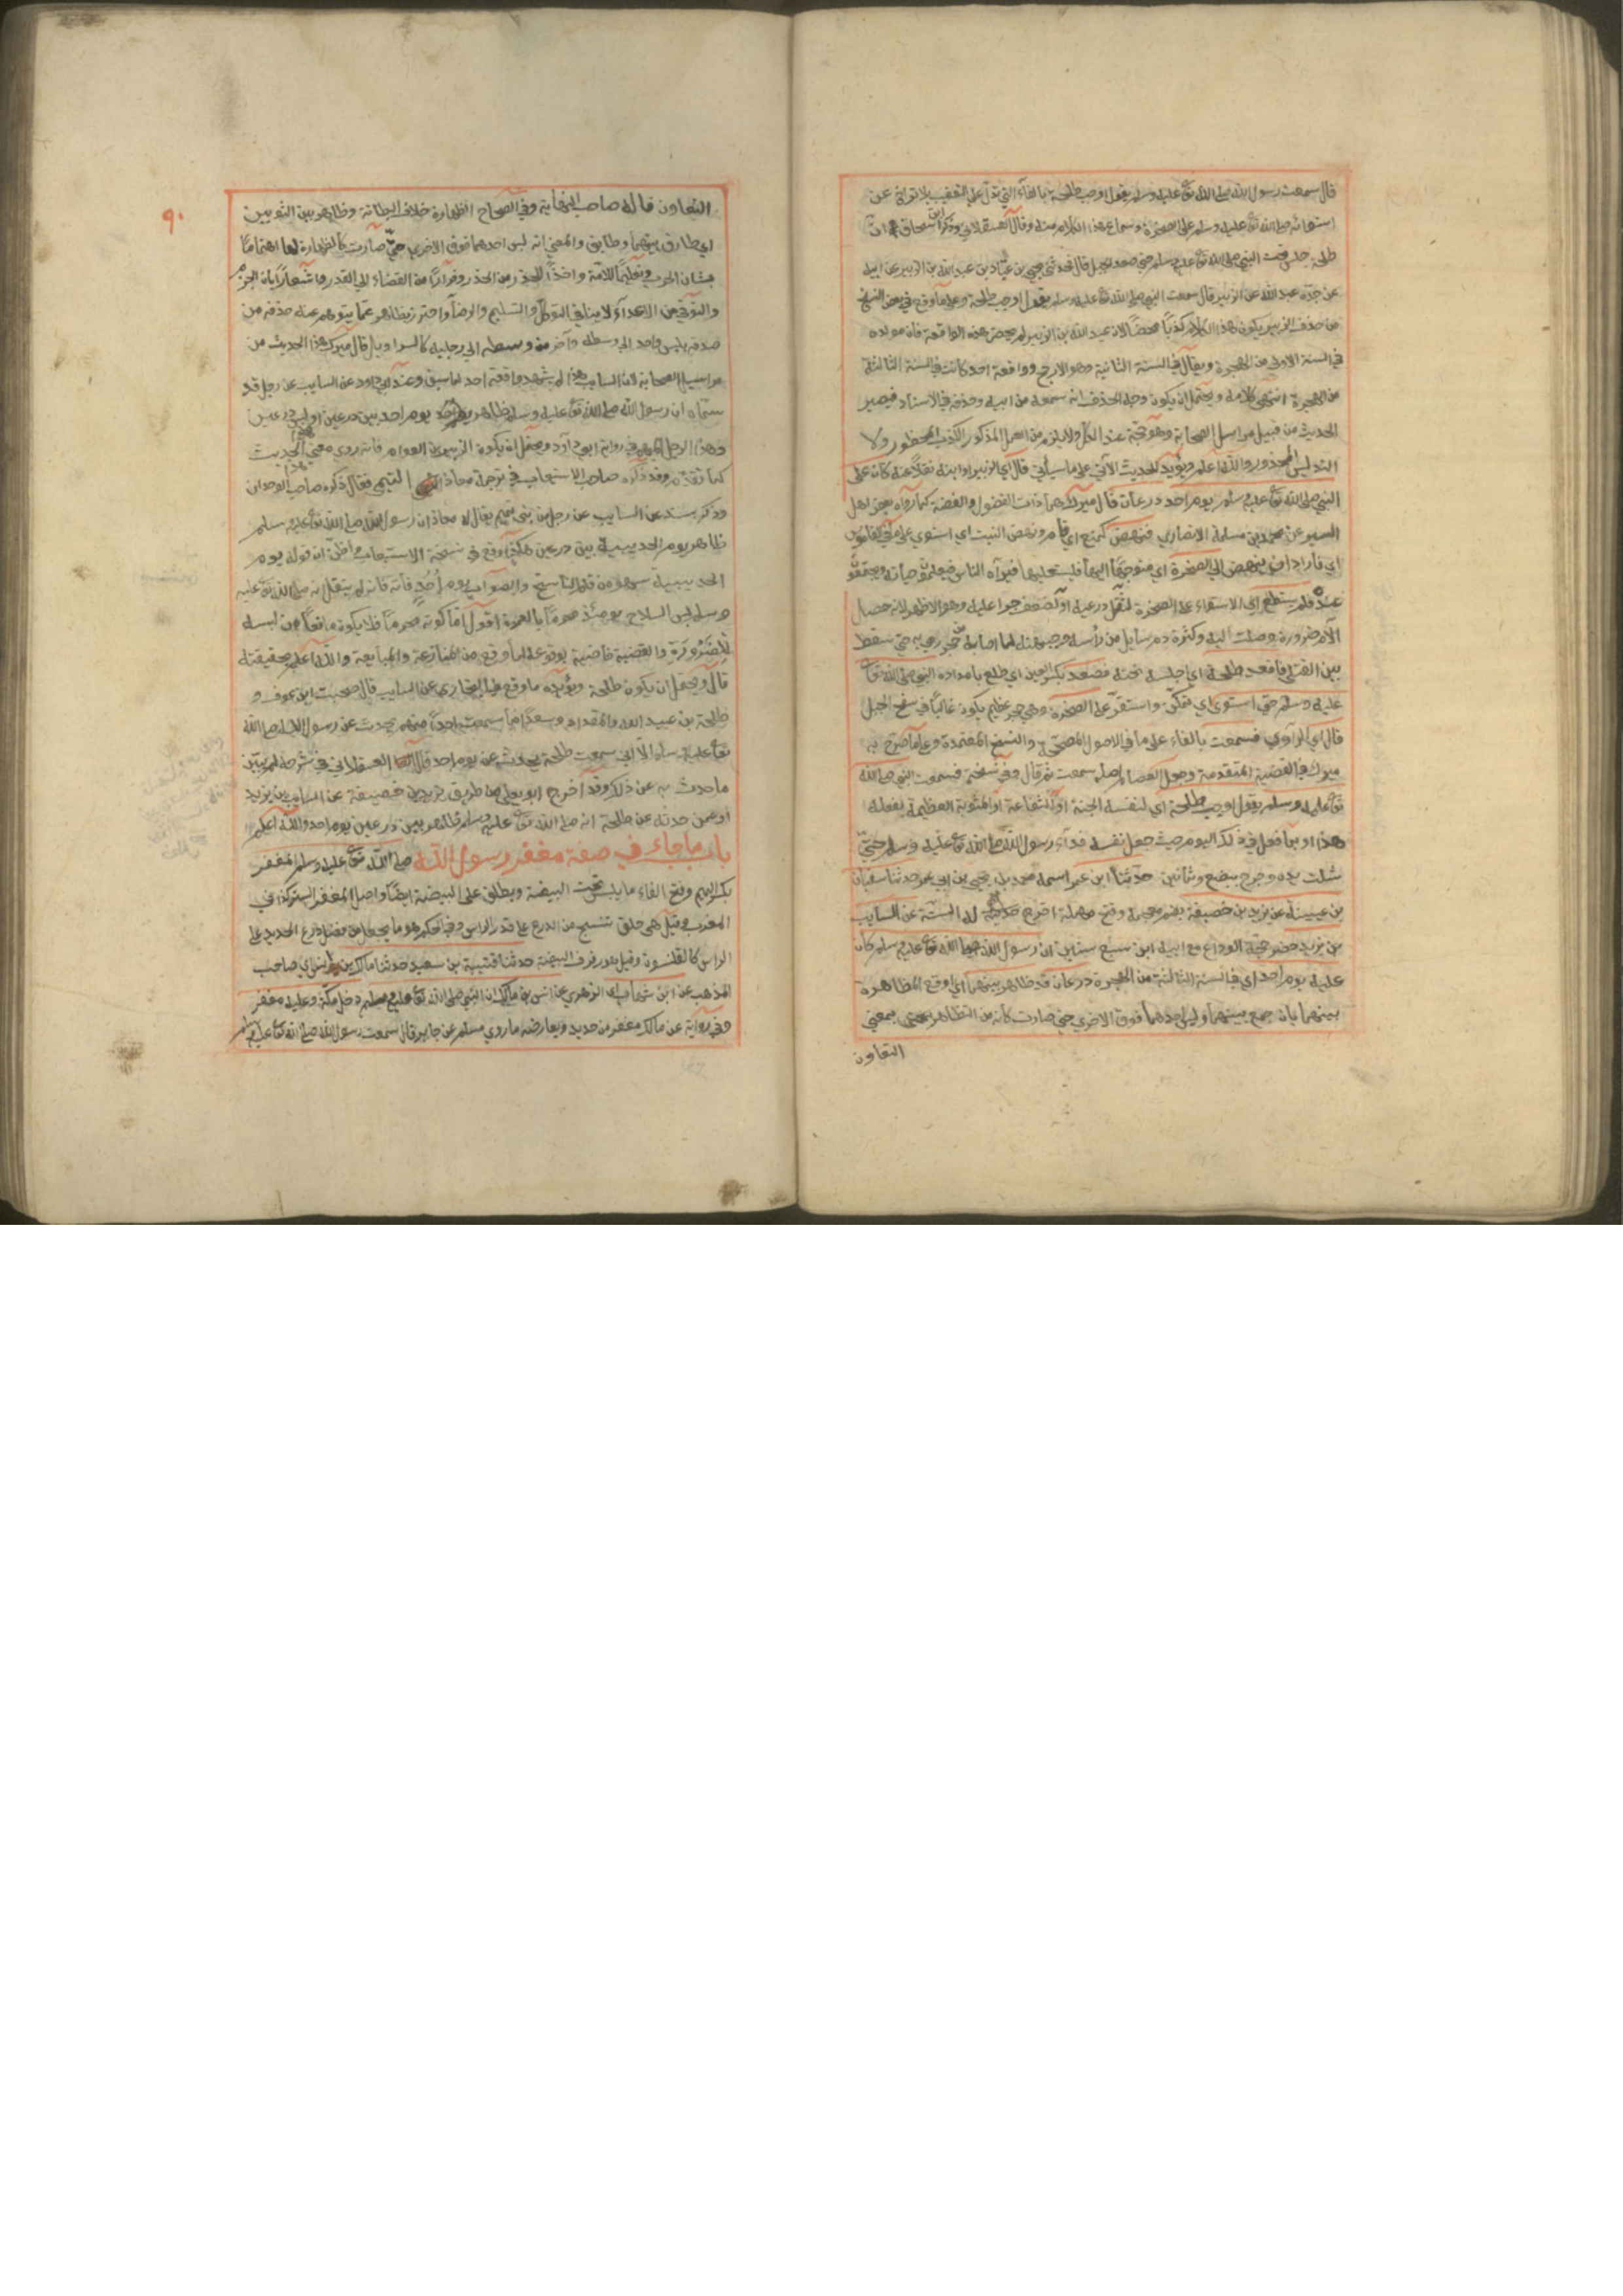 قال سمعت رسول الله صلى الله تع عليه وسلم يقول اوجب طلحة بالفاء التي تدل على التعقيب بلا تراخ عن
استوائه صلى الله تع عليه وسلم على الصخرة وسماع هذا الكلام منه وقال العسقلاني وذكر ابن اسحاق ان
طلحة جلس تحت النبي صلى الله تع عليه وسلم حتى صعد الجبل قال فحدثني يحيى بن عباد بن عبد الله بن الزبير عن ابيه
عن جده عبد الله عن الزبير قال سمعت النبي صلى الله تع عليه وسلم يقول اوجب طلحة وعلى ما وقع في بعض النسخ
من حذف الزبير يكون هذا الكلام كذبا محضا لان عبد الله بن الزبير لم يحضر هذه الواقعة فان مولده
في السنة الاولى من الهجرة ويقال في السنة الثانية وهو الارجح وواقعة احد كانت في السنة الثالثة
من الهجرة انتهى كلامه ويحتمل ان يكون وجه الحذف انه سمعه من ابيه وحذفه في الاسناد فيصير
الحديث من قبيل مراسيل الصحابة وهو حجة عند الكل ولا يلزم من العمل المذكور الكذب المحظور ولا
التدليس المحذور والله اعلم ويؤيد الحديث الآتي على ما سيأتي قال اي الزبير او ابنه نقلا عنه كان على
النبي صلى الله تع عليه وسلم يوم احد درعان قال ميرك هما ذات الفضول والفضة كما رواه بعض اهل
السير عن محمد بن مسلمة الانصاري فنهض كمنع اي قام ونهض النبت اي استوى على ما في القاموس
اي فاراد ان ينهض الى الصخرة اي متوجها اليها فليستعليها فيراه الناس فيعلموا حياته ويجتمعوا
عنده فلم يستطع اي الاستواء على الصخرة لثقل درعيه او لضعف جرا عليه وهو الاظهر لانه حصل
الآم ضرورة وصلت اليه وكثرة دم سايل من رأسه وجبهته لما اصابه من حجر رمي به حتى سقط
بين القتلى فاقعد طلحة اي اجلسه تحته فصعد بكسر العين اي طلع بامداده النبي صلى الله تع
عليه وسلم حتى استوى اي تمكن واستقر على الصخرة وهي حجر عظيم يكون غالبا في سفح الجبل
قال اي الراوي فسمعت بالفاء على ما في الاصول المصححة والنسخ المعتمدة وعلى ما صرح به
ميرك في القضية المتقدمة وجعل العصام اصله سمعت ثم قال وفي نسخة فسمعت النبي صلى الله
تع عليه وسلم يقول اوجب طلحة اي لنفسه الجنة او الشفاعة او المثوبة العظيمة بفعله
هذا او بما فعل في ذلك اليوم حيث جعل نفسه فداء رسول الله صلى الله تع عليه وسلم حتى
شلت يده وجرح ببضع وثمانين حدثنا ابن عمر اسمه محمد بن يحيى بن ابي عمر حدثنا سفيان
بن عيينة عن يزيد بن خصيفة بضم معجمة وفتح مهملة اخرج حديثه له الستة عن السايب
بن يزيد حضر حجة الوداع مع ابيه ابن سبع سنين ان رسول الله صلى الله تع عليه وسلم كان
عليه يوم احد اي في السنة الثالثة من الهجرة درعان قد ظاهر بينهما اي اوقع المظاهرة
بينهما بان جمع بينهما ولبس احدهما فوق الاخرى حتى صارت كانه من التظاهر بمعنى
التعاون
٩٠
التعاون قاله صاحب النهاية وفي الصحاح الظهارة خلاف البطانة وظاهر بين الثوبين
اي طارق بينهما وطابق والمعنى انه لبس احدهما فوق الاخرى حتى صارت كالظهارة لها اهتماما
بشان الحرب وتعليما للامة واخذا للحذر من الحذر وفرارا من القضاء الى القدر واشعارا بان الحزم
والتوقي من الاعداء لا ينافي التوكل والتسليم والرضا واحترز بظاهر عما يتوهم عند حذفه من
صدقه بلبس واحد الى وسطه وآخر من وسطه الى رجليه كالسراويل قال ميرك هذا الحديث من
مراسيل الصحابة لان السايب هذا لم يشهد واقعة احد لما سبق وعند ابي داود عن السايب عن رجل قد
سماه ان رسول الله صلى الله تع عليه وسلم ظاهر يوم احد بين درعين او لبس درعين
وهذا الرجل المبهم في رواية ابي داود يحتمل ان يكون الزبير بن العوام فانه روى معنى هذا الحديث
كما تقدم وقد ذكره صاحب الاستيعاب في ترجمة معاذ التيمي فقال ذكره صاحب الوحدان
وذكر بسنده عن السايب عن رجل من بني تميم يقال له معاذ ان رسول الله صلى الله تع عليه وسلم
ظاهر يوم الحديبية بين درعين هكذا وقع في نسخة الاستيعاب واظن ان قوله يوم
الحديبية سهو من قلم الناسخ والصواب يوم احد فانه لم ينقل انه صلى الله تع عليه
وسلم لبس السلاح يومئذ محرما بالعمرة اقول اما كونه محرما فلا يكون مانعا من لبسه
للضرورة والقضية قاضية بوقوعه لما وقع من المنازعة والمبايعة والله اعلم بحقيقته
قال ويحتمل ان يكون طلحة ويؤيده ما وقع في البخاري عن السايب قال صحبت ابن عوف و
طلحة بن عبيد الله والمقداد وسعدا فما سمعت احدا منهم يحدث عن رسول الله صلى الله
تع عليه وسلم الا اني سمعت طلحة يحدث عن يوم احد قال العسقلاني في شرحه لم يبين
ما حدث به عن ذلك وقد اخرج ابو يعلى من طريق يزيد بن خصيفة عن السايب بن يزيد
او عمن حدثه عن طلحة انه صلى الله تع عليه وسلم ظاهر بين درعين يوم احد والله اعلم
باب ما جاء في صفة مغفر رسول الله صلى الله تع عليه وسلم المغفر
بكسر الميم وفتح الفاء ما يلبس تحت البيضة ويطلق على البيضة ايضا واصل المغفر الستر كذا في
المغرب وقيل هي حلق تنسج من الدرع على قدر الراس وفي المحكم هو ما يجعل من فضل درع الحديد على
الراس كالقلنسوة وقيل هو رفرف البيضة حدثنا قتيبة بن سعيد حدثنا مالك بن انس اي صاحب
المذهب عن ابن شهاب اي الزهري عن انس بن مالك ان النبي صلى الله تع عليه وسلم دخل مكة وعليه مغفر
وفي رواية عن مالك مغفر من حديد ويعارضه ما روي مسلم عن جابر قال سمعت رسول الله صلى الله تع عليه وسلم